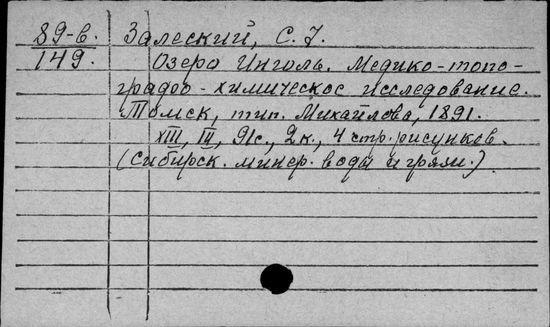 89-в. Залеский, С. I.
149. Озеро Инголь. Медико-топо-
графо-химическое исследование.
Томск, тип. Михайлова, 1891.
XIII, III, 91с., 2 к., 4 стр. рисунков.
(Сибирск. минер. воды и грязи.)